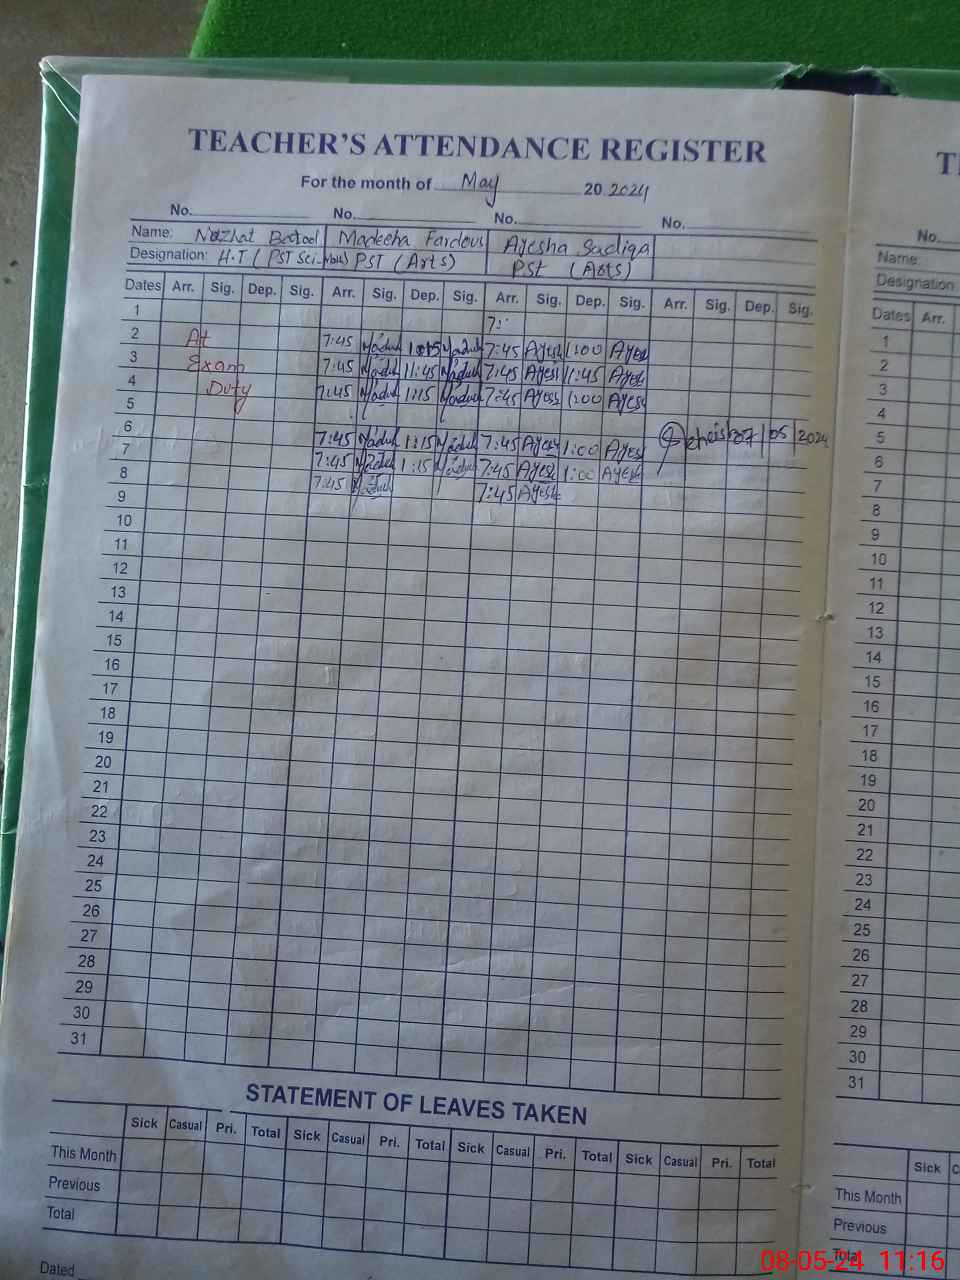 TEACHER'S ATTENDANCE REGISTER
For the month of May 20 2024
No. No. No. No.
Name: Nozhat Batool Madeeha Fardous Ayesha Sadiqa
Designation: H.T (PST Sci- PST (Arts) PST (Arts)
Dates Arr. Sig. Dep. Sig. Arr. Sig. Dep. Sig. Arr. Sig. Dep. Sig. Arr. Sig. Dep. Sig.
1 7:
2 At 7:45 7:45 Ayesh 1:00 Ayesh
3 Exam 7:45 11:45 7:45 Ayesh 11:45 Ayesh
4 Duty 7:45 1:15 7:45 Ayesh 1200 Ayesh
5
6 7:45 1:15 7:45 Ayesh 1:00 Ayesh 07/05/2024
7 7:45 1:15 7:45 Ayesh 1:00 Ayesh
8 7:45 7:45 Ayesh
9
10
11
12
13
14
15
16
17
18
19
20
21
22
23
24
25
26
27
28
29
30
31
STATEMENT OF LEAVES TAKEN
Sick Casual Pri. Total Sick Casual Pri. Total Sick Casual Pri. Total Sick Casual Pri. Total
This Month
Previous
Total
Dated
No.
Name:
Designation
Dates Arr.
1
2
3
4
5
6
7
8
9
10
11
12
13
14
15
16
17
18
19
20
21
22
23
24
25
26
27
28
29
30
31
Sick
This Month
Previous
Total
08-05-24 11:16